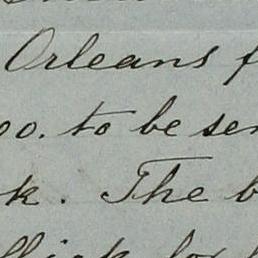 Orleans f
00. to be sen
k. The b